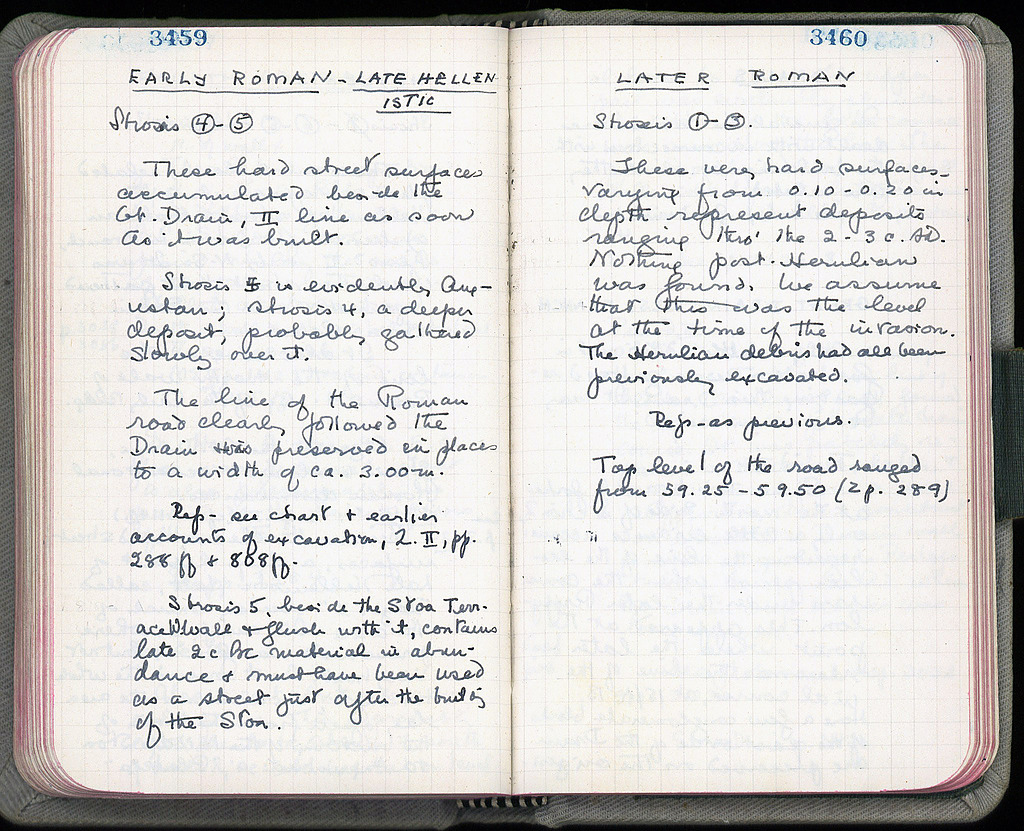 3459
EARLY ROMAN - LATE HELLEN
ISTIC
Strosis ④-⑤
These hard street surfaces
accumulated beside the
Gt. Drain, II line as soon
as it was built.
Strosis 5 is evidently Aug-
ustan; strosis 4, a deeper
deposit, probably gathered
slowly over it.
The line of the Roman
road clearly followed the
Drain preserved in places
to a width of ca. 3.00 m.
Refs - see chart + earlier
accounts of excavation, Σ. II, pp.
288 ff + 808 ff.
Strosis 5, beside the Stoa Terr-
ace Wall + flush with it, contains
late 2 c BC material in abun-
dance + must have been used
as a street just after the build'g
of the Stoa.
3460
LATER ROMAN
Strosis ①-③.
These very hard surfaces
varying from 0.10 - 0.20 in
depth represent deposits
ranging thro' the 2 - 3 c. AD.
Nothing post-Herulian
was found. We assume
that this was the level
at the time of the invasion.
The Herulian debris had all been
previously excavated.
Refs - as previous.
Top level of the road ranged
from 59.25 - 59.50 (Σ p. 289)